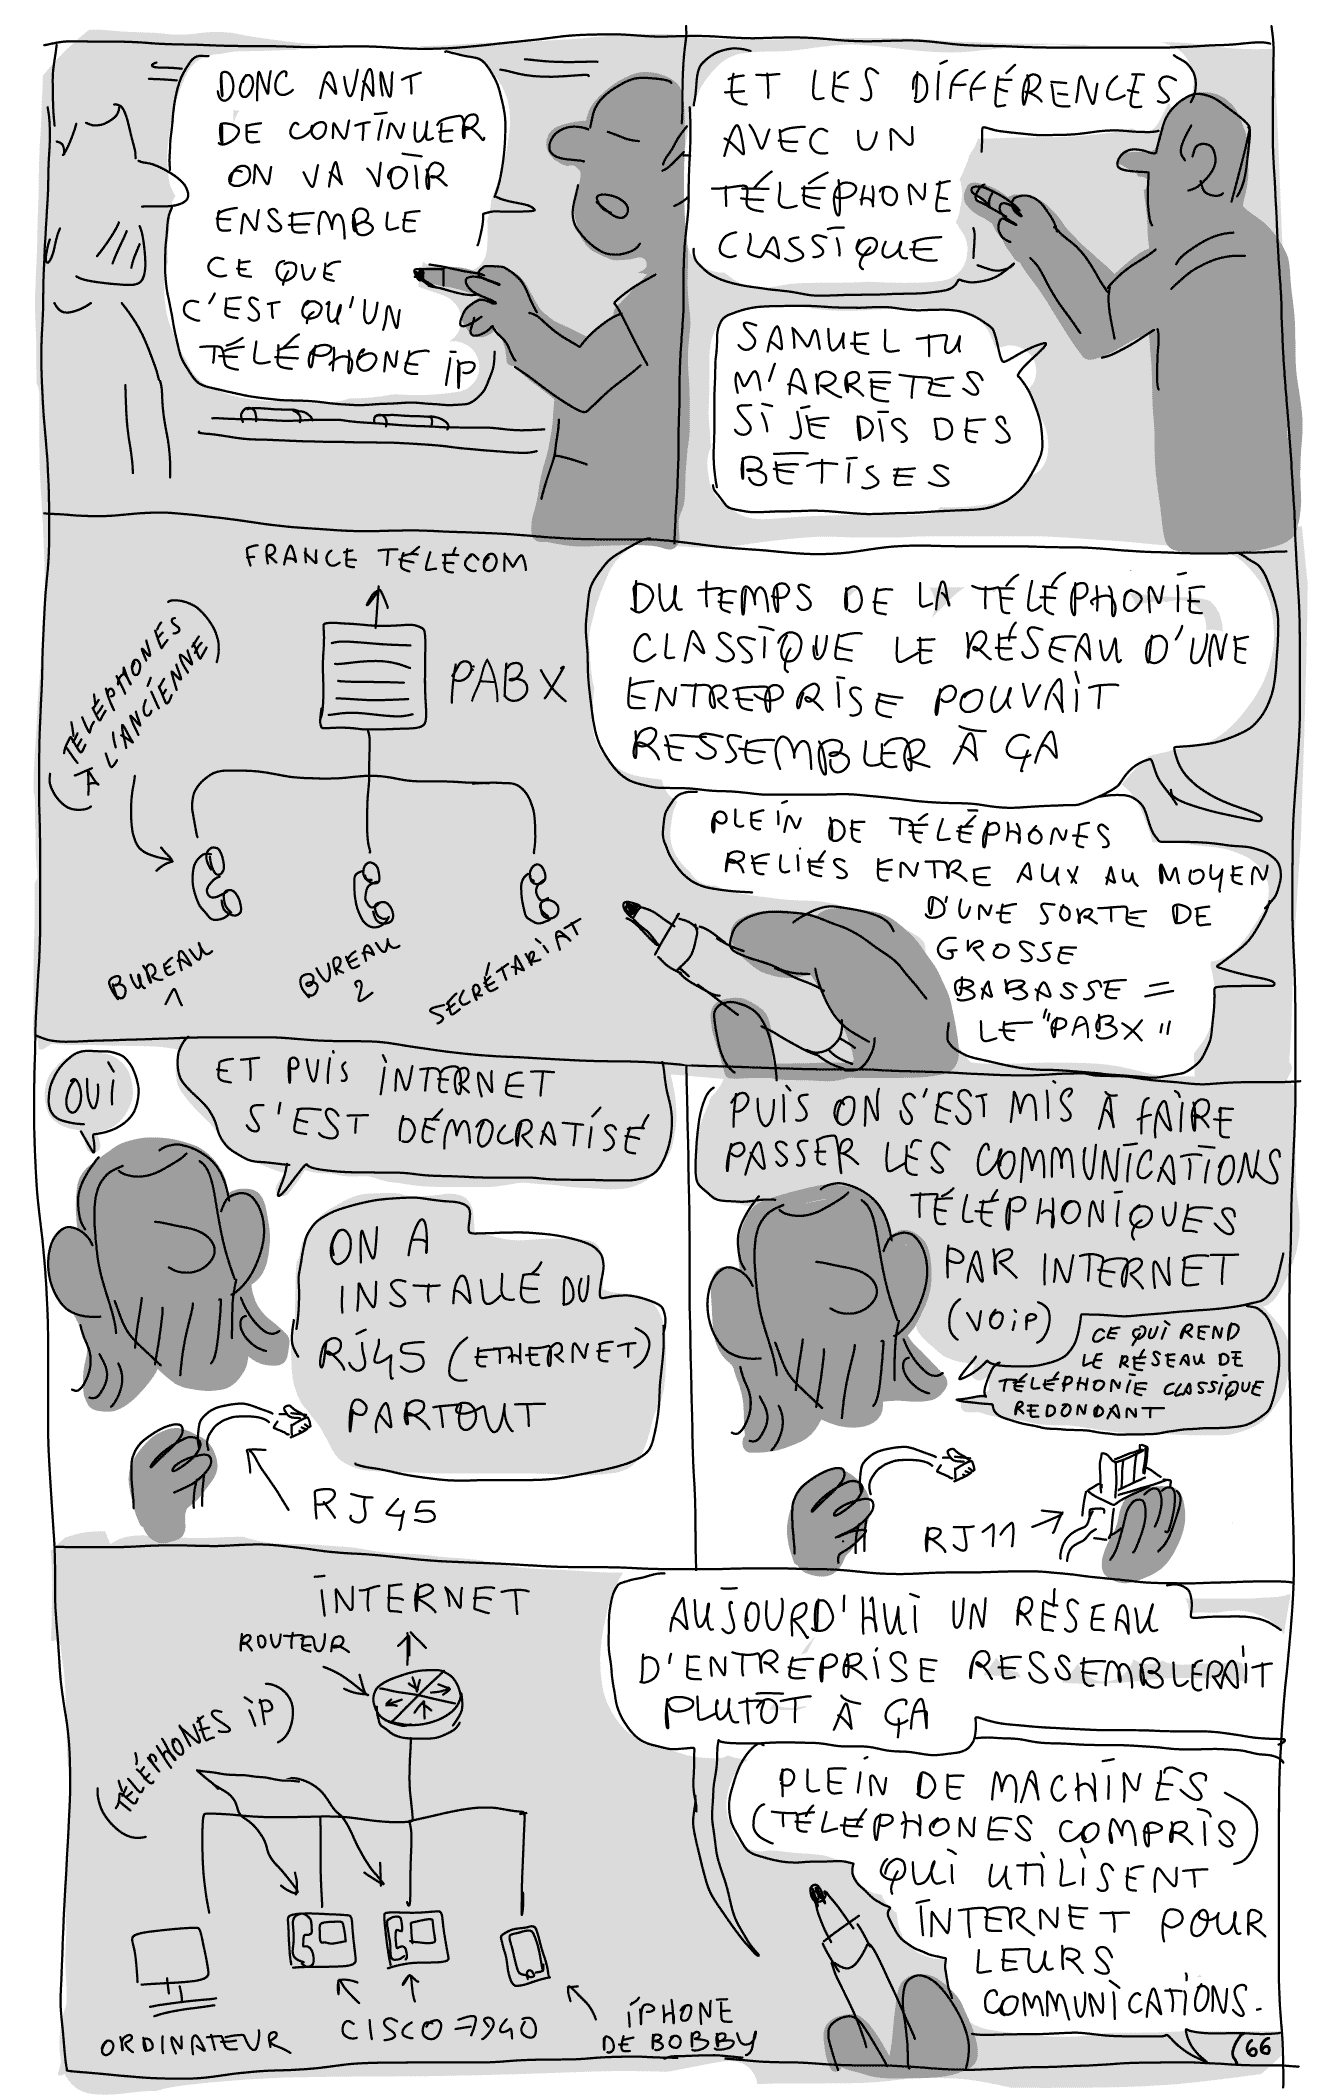 DONC AVANT
DE CONTINUER
ON VA VOIR
ENSEMBLE
CE QUE
C'EST QU'UN
TÉLÉPHONE IP
ET LES DIFFÉRENCES
AVEC UN
TÉLÉPHONE
CLASSIQUE
SAMUEL TU
M'ARRETES
SI JE DIS DES
BÊTISES
FRANCE TÉLÉCOM
(TÉLÉPHONES
À L'ANCIENNE)
PABX
BUREAU
1
BUREAU
2
SECRÉTARIAT
DU TEMPS DE LA TÉLÉPHONIE
CLASSIQUE LE RÉSEAU D'UNE
ENTREPRISE POUVAIT
RESSEMBLER À ÇA
PLEIN DE TÉLÉPHONES
RELIÉS ENTRE AUX AU MOYEN
D'UNE SORTE DE
GROSSE
BABASSE =
LE "PABX"
OUI
ET PUIS INTERNET
S'EST DÉMOCRATISÉ
ON A
INSTALLÉ DU
RJ45 (ETHERNET)
PARTOUT
RJ45
PUIS ON S'EST MIS À FAIRE
PASSER LES COMMUNICATIONS
TÉLÉPHONIQUES
PAR INTERNET
(VOIP)
CE QUI REND
LE RÉSEAU DE
TÉLÉPHONIE CLASSIQUE
REDONDANT
RJ11
INTERNET
ROUTEUR
(TÉLÉPHONES IP)
ORDINATEUR
CISCO 7940
IPHONE
DE BOBBY
AUJOURD'HUI UN RÉSEAU
D'ENTREPRISE RESSEMBLERAIT
PLUTÔT À ÇA
PLEIN DE MACHINES
(TÉLÉPHONES COMPRIS)
QUI UTILISENT
INTERNET POUR
LEURS
COMMUNICATIONS.
66